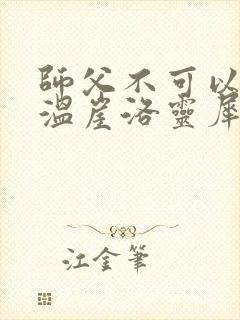 師父不可以
溫崖洛靈犀
江金筆